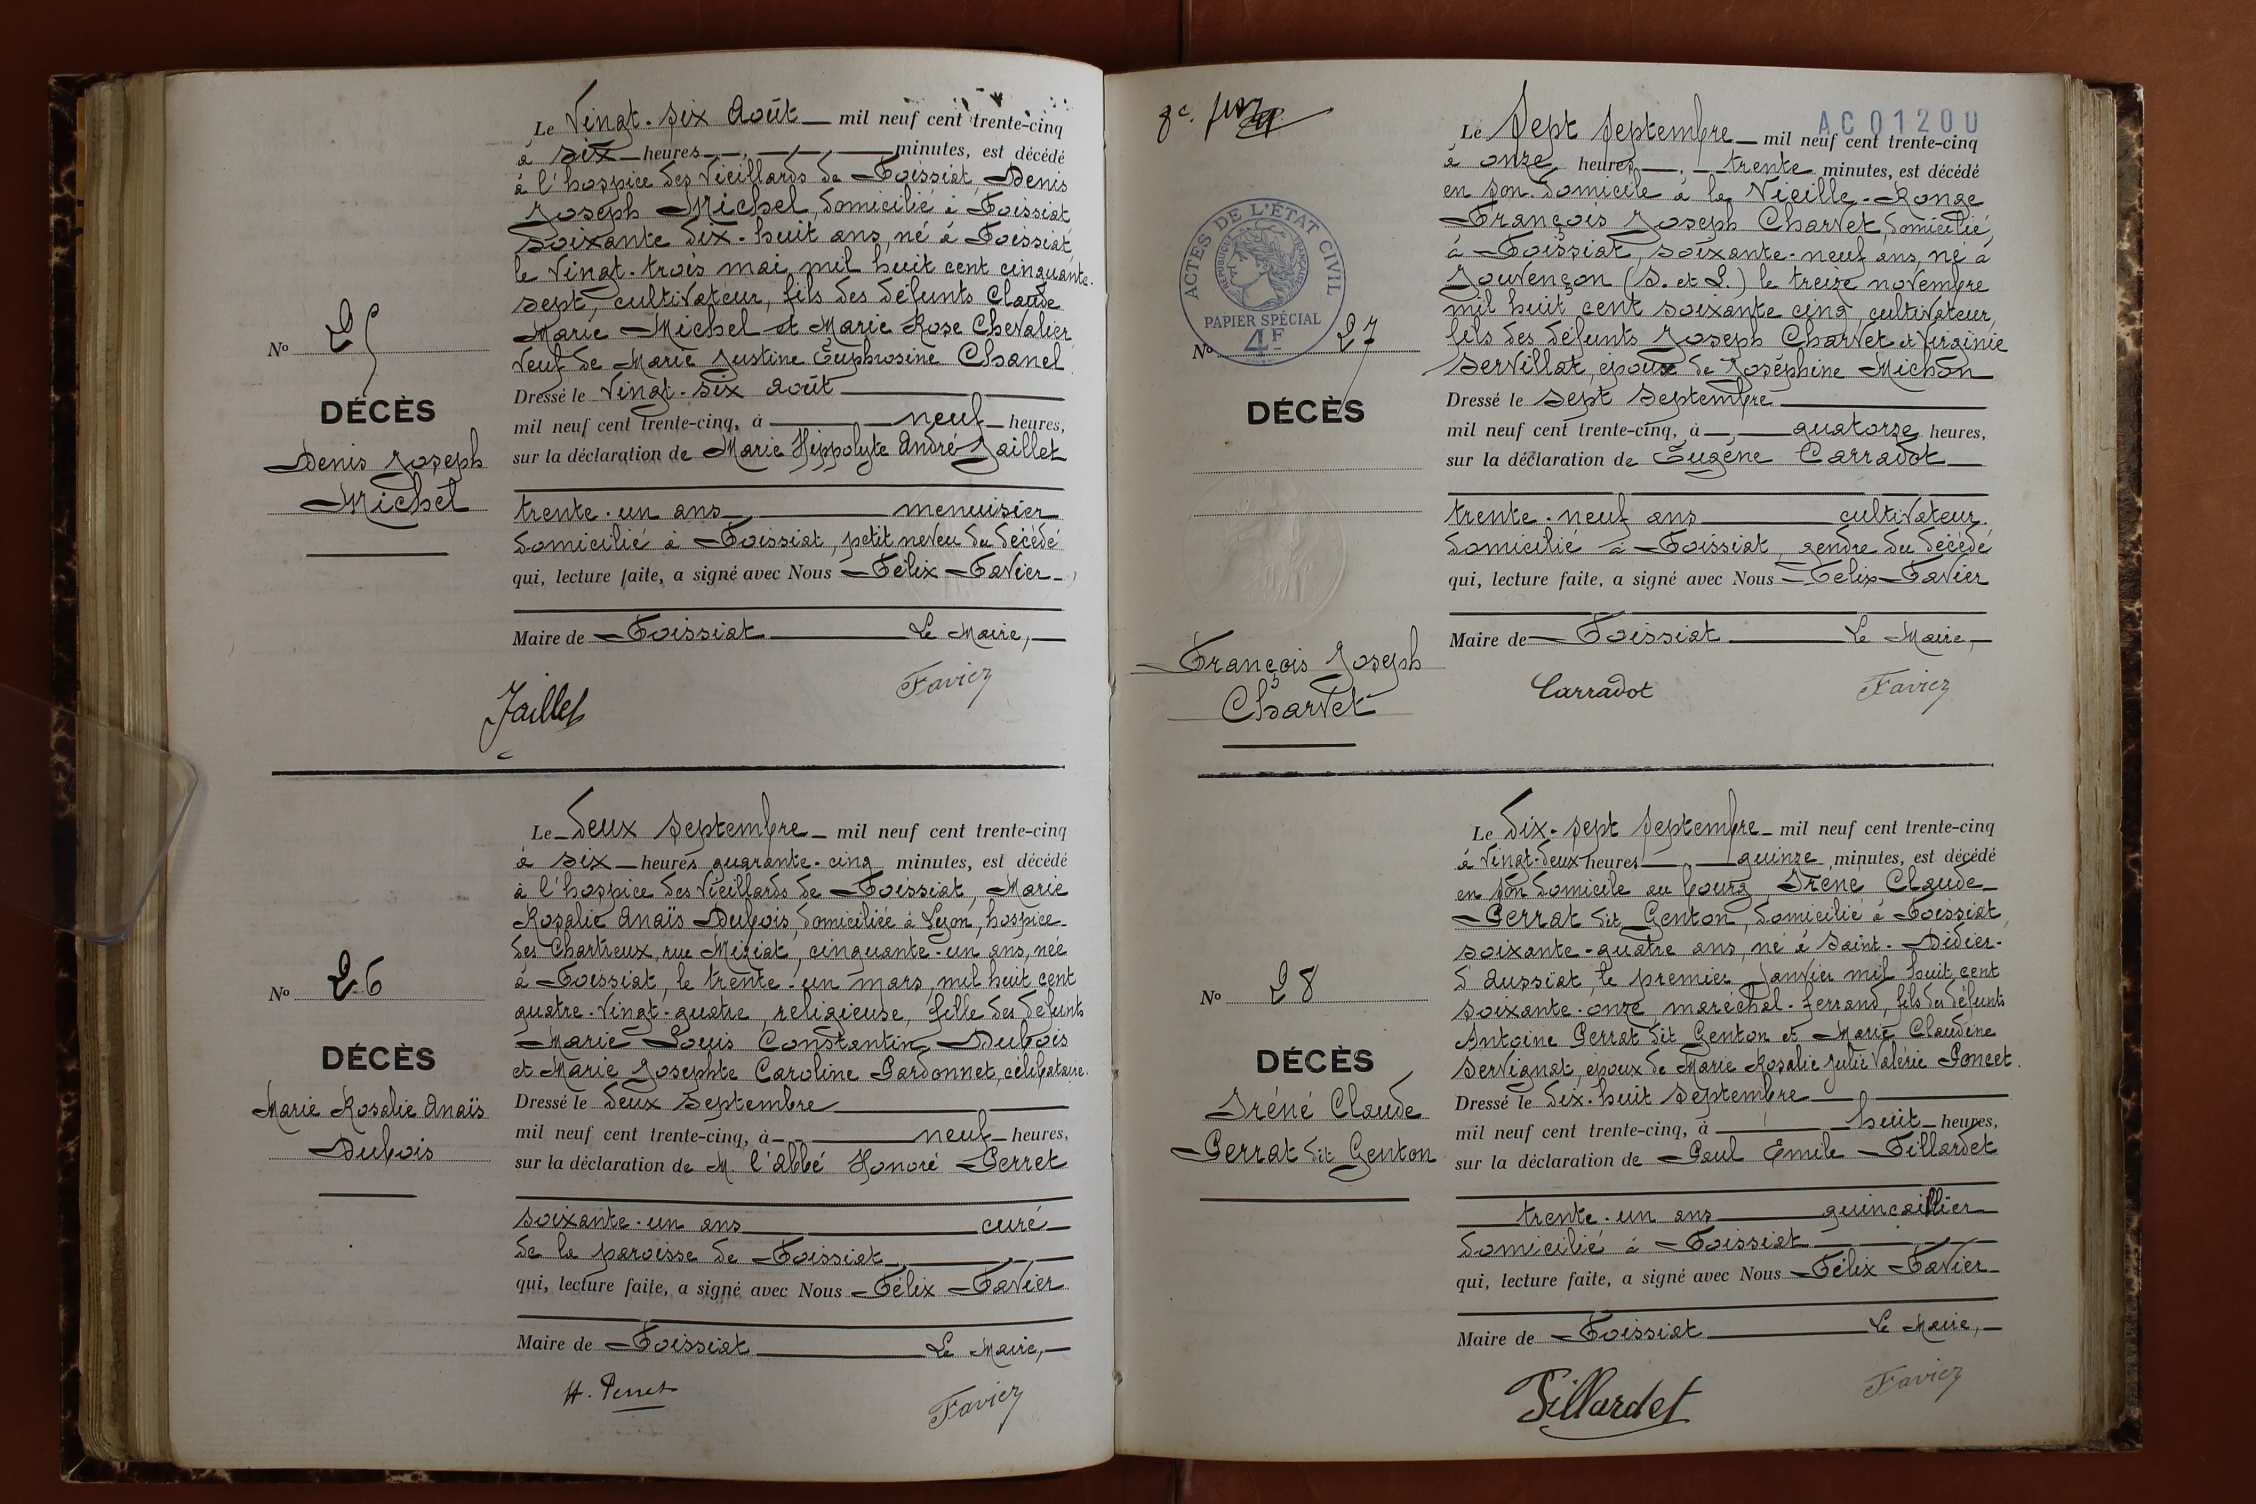 Le Vingt-six Août mil neuf cent trente-cinq
à six heures minutes, est décédé
à l'hospice des Vieillards de Foissiat, Denis
Joseph Michel, domicilié à Foissiat,
soixante dix-huit ans, né à Foissiat,
le vingt-trois mai mil huit cent cinquante-
sept, cultivateur, fils des défunts Claude
Marie Michel et Marie Rose Chevalier
veuf de Marie Justine Euphrosine Chanel
Nº 25
DÉCÈS
Denis Joseph
Michel
Dressé le vingt-six août
mil neuf cent trente-cinq, à neuf heures,
sur la déclaration de Marie Hippolyte André Jaillet
trente-un ans menuisier
domicilié à Foissiat, petit neveu du décédé
qui, lecture faite, a signé avec Nous Félix Favier
Maire de Foissiat Le Maire,
Jaillet Favier
Le deux septembre mil neuf cent trente-cinq
à six heures quarante-cinq minutes, est décédé
à l'hospice des Vieillards de Foissiat, Marie
Rosalie Anaïs Dubois, domiciliée à Lyon, hospice
des Chartreux, rue Meziat, cinquante-un ans, née
à Foissiat, le trente-un mars, mil huit cent
quatre-vingt-quatre, religieuse, fille des défunts
Marie Louis Constantin Dubois
et Marie Josephte Caroline Pardonnet, célibataire.
Nº 26
DÉCÈS
Marie Rosalie Anaïs
Dubois
Dressé le deux septembre
mil neuf cent trente-cinq, à neuf heures,
sur la déclaration de M. l'abbé Honoré Perret
soixante-un ans curé
de la paroisse de Foissiat
qui, lecture faite, a signé avec Nous Félix Favier
Maire de Foissiat Le Maire,
H. Perret Favier
AC01200
ACTES DE L'ÉTAT CIVIL
RÉPUBLIQUE FRANÇAISE
PAPIER SPÉCIAL
4F
Le sept septembre mil neuf cent trente-cinq
à onze heures trente minutes, est décédé
en son domicile à la Vieille-Ronge
François Joseph Charvet, domicilié,
à Foissiat, soixante-neuf ans, né à
Jouvençon (S. et L.) le treize novembre
mil huit cent soixante cinq, cultivateur,
fils des défunts Joseph Charvet et Virginie
Servillat, époux de Joséphine Michon
Nº 27
DÉCÈS
François Joseph
Charvet
Dressé le sept septembre
mil neuf cent trente-cinq, à quatorze heures,
sur la déclaration de Eugène Carradot
trente-neuf ans cultivateur
domicilié à Foissiat, gendre du décédé
qui, lecture faite, a signé avec Nous Félix Favier
Maire de Foissiat Le Maire,
Carradot Favier
Le dix-sept septembre mil neuf cent trente-cinq
à vingt-deux heures quinze minutes, est décédé
en son domicile au bourg Iréné Claude
Perrat dit Genton, domicilié à Foissiat,
soixante-quatre ans, né à Saint-Didier-
d'Aussiat, le premier janvier mil huit cent
soixante-onze, maréchal-ferrand, fils des défunts
Antoine Perrat dit Genton et Marie Claudine
Servignat, époux de Marie Rosalie Julie Valérie Poncet.
Nº 28
DÉCÈS
Iréné Claude
Perrat dit Genton
Dressé le dix-huit septembre
mil neuf cent trente-cinq, à huit heures,
sur la déclaration de Paul Emile Tillardet
trente-un ans quincaillier
domicilié à Foissiat
qui, lecture faite, a signé avec Nous Félix Favier
Maire de Foissiat Le Maire,
Tillardet Favier